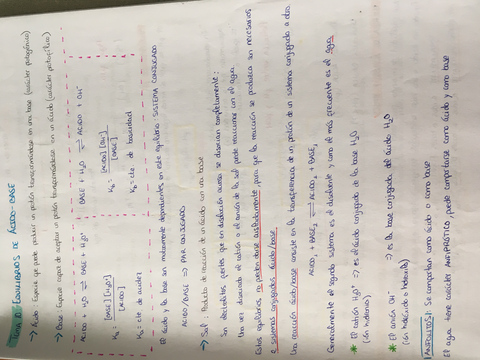 TEMA 2: EQUILIBRIOS DE ÁCIDO-BASE
→ Ácido: Especie que puede producir un protón transformándose en una base (carácter protogénico)
→ Base: Especie capaz de aceptar un protón transformándose en un ácido (carácter protofílico)
ÁCIDO + H₂O ⇌ BASE + H₃O⁺
BASE + H₂O ⇌ ÁCIDO + OH⁻
Ka = [BASE][H₃O⁺] / [ÁCIDO]
Kb = [ÁCIDO][OH⁻] / [BASE]
Ka: cte de acidez
Kb: cte de basicidad
El ácido y la base son mutuamente dependientes en este equilibrio: SISTEMA CONJUGADO
ÁCIDO/BASE ⇒ PAR CONJUGADO
→ Sal: Producto de reacción de un ácido con una base
Son electrolitos fuertes que en disolución acuosa se disocian completamente:
Una vez disociada el catión o el anión de la sal puede reaccionar con el agua.
Estos equilibrios, no pueden darse aisladamente, para que la reacción se produzca son necesarios
2 sistemas conjugados ácido/base.
Una reacción ácido/base consiste en la transferencia de un protón de un sistema conjugado a otro.
ÁCIDO₁ + BASE₂ ⇌ ÁCIDO₂ + BASE₁
Generalmente el segundo sistema es el disolvente y como el más frecuente es el agua
* El catión H₃O⁺ ⇒ es el ácido conjugado de la base H₂O
(ión hidronio)
* El anión OH⁻ ⇒ es la base conjugada del ácido H₂O
(ión hidróxido o hidroxilo)
ANFOLITOS: Se comportan como ácido o como base
El agua tiene carácter ANFIPRÓTICO, puede comportarse como ácido y como base